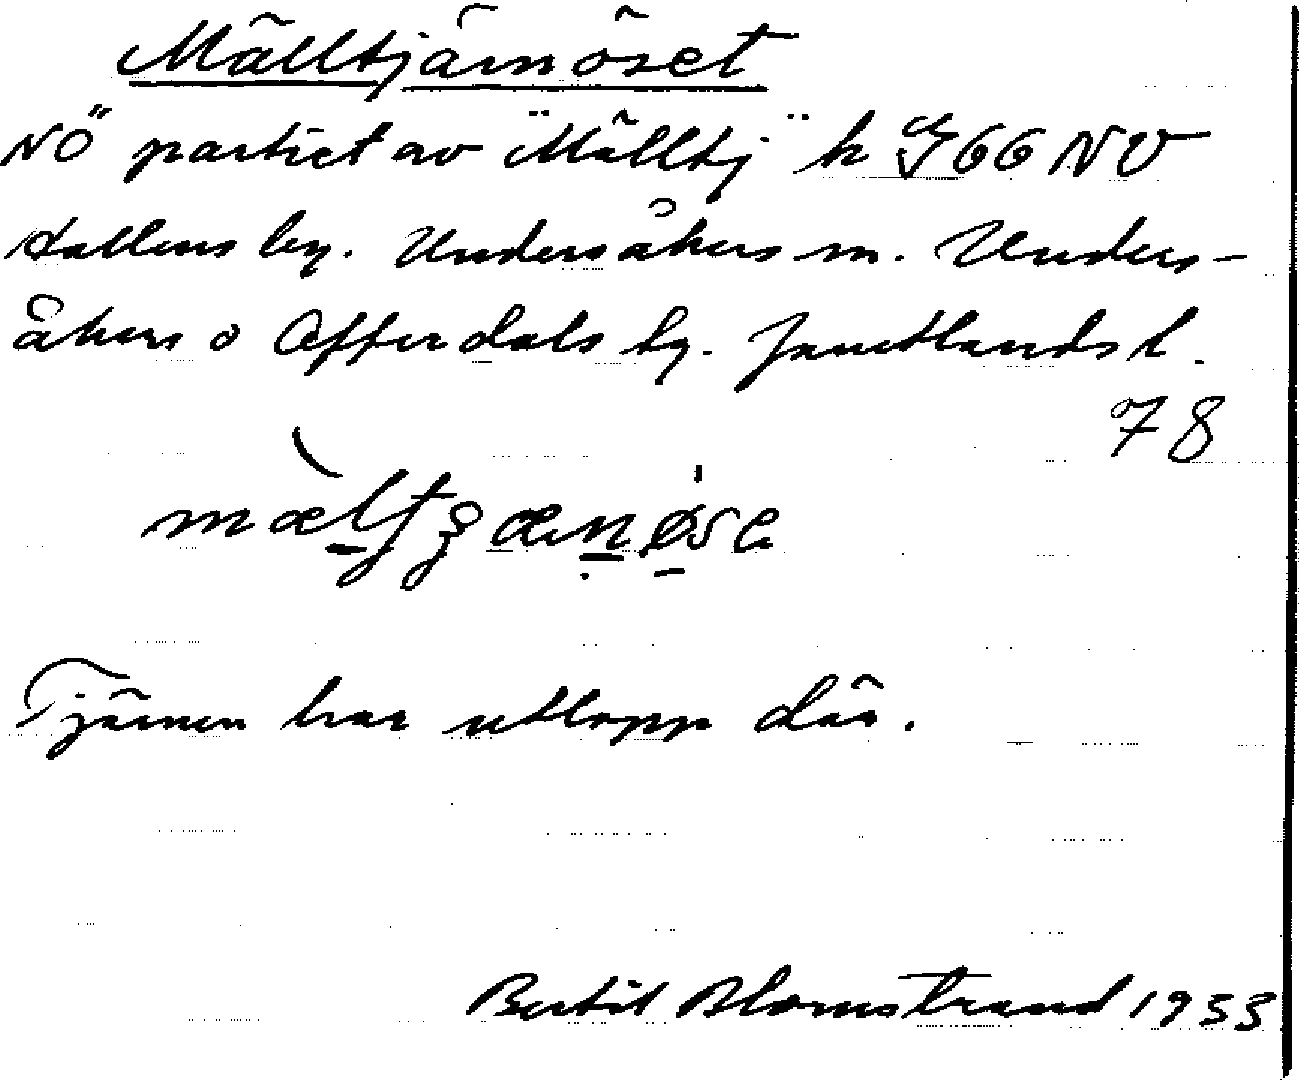 Mälltjärnöset
NÖ partiet av "Mälltj" k G66 NV
stallens by. Undersåkers sn. Under-
åkers o Offerdals tg. Jämtlands l.
78
Tjärnen har utlopp där.
Bertil Blomstrand 1933